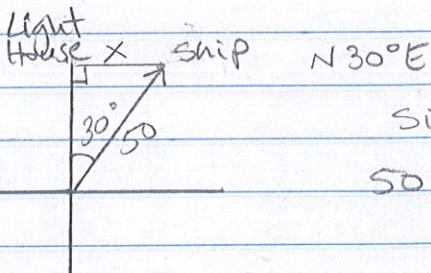 Light
House X ship N30°E
30° 50 Si
50